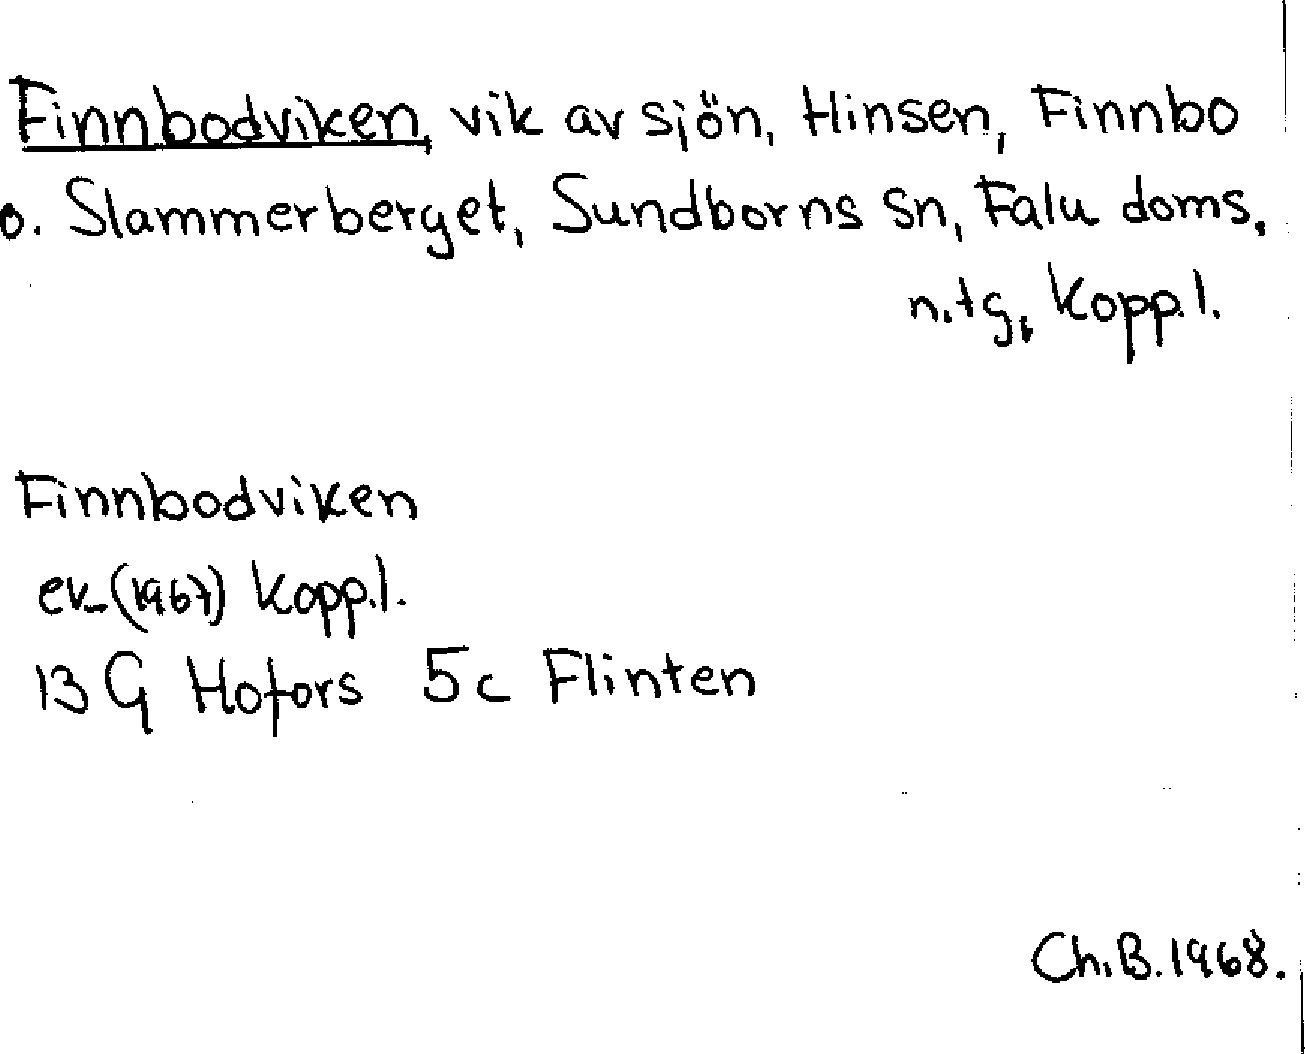 Finnbodviken, vik av sjön, Hinsen, Finnbo
o. Slammerberget, Sundborns sn, Falu doms.
n.tg, Kopp.l.
Finnbodviken
ek (1967) Kopp.l.
13 G Hofors 5c Flinten
Ch.B.1968.